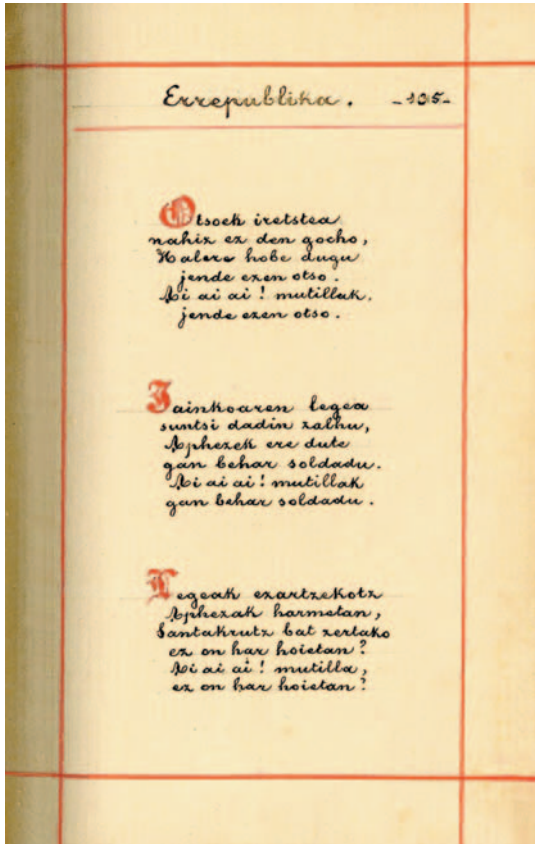 Errepublika. -105-
Otsoek iretstea
nahiz ez den gocho,
Halere hobe dugu
jende ezen otso.
Ai ai ai! mutillak.
jende ezen otso.
Jainkoaren legea
suntsi dadin zalhu,
Aphezek ere dute
gan behar soldadu.
Ai ai ai! mutillak
gan behar soldadu.
Legeak ezartzekotz
Aphezak harmetan,
Santakrutz bat zertako
ez on har hoietan?
Ai ai ai! mutilla,
ez on har hoietan?